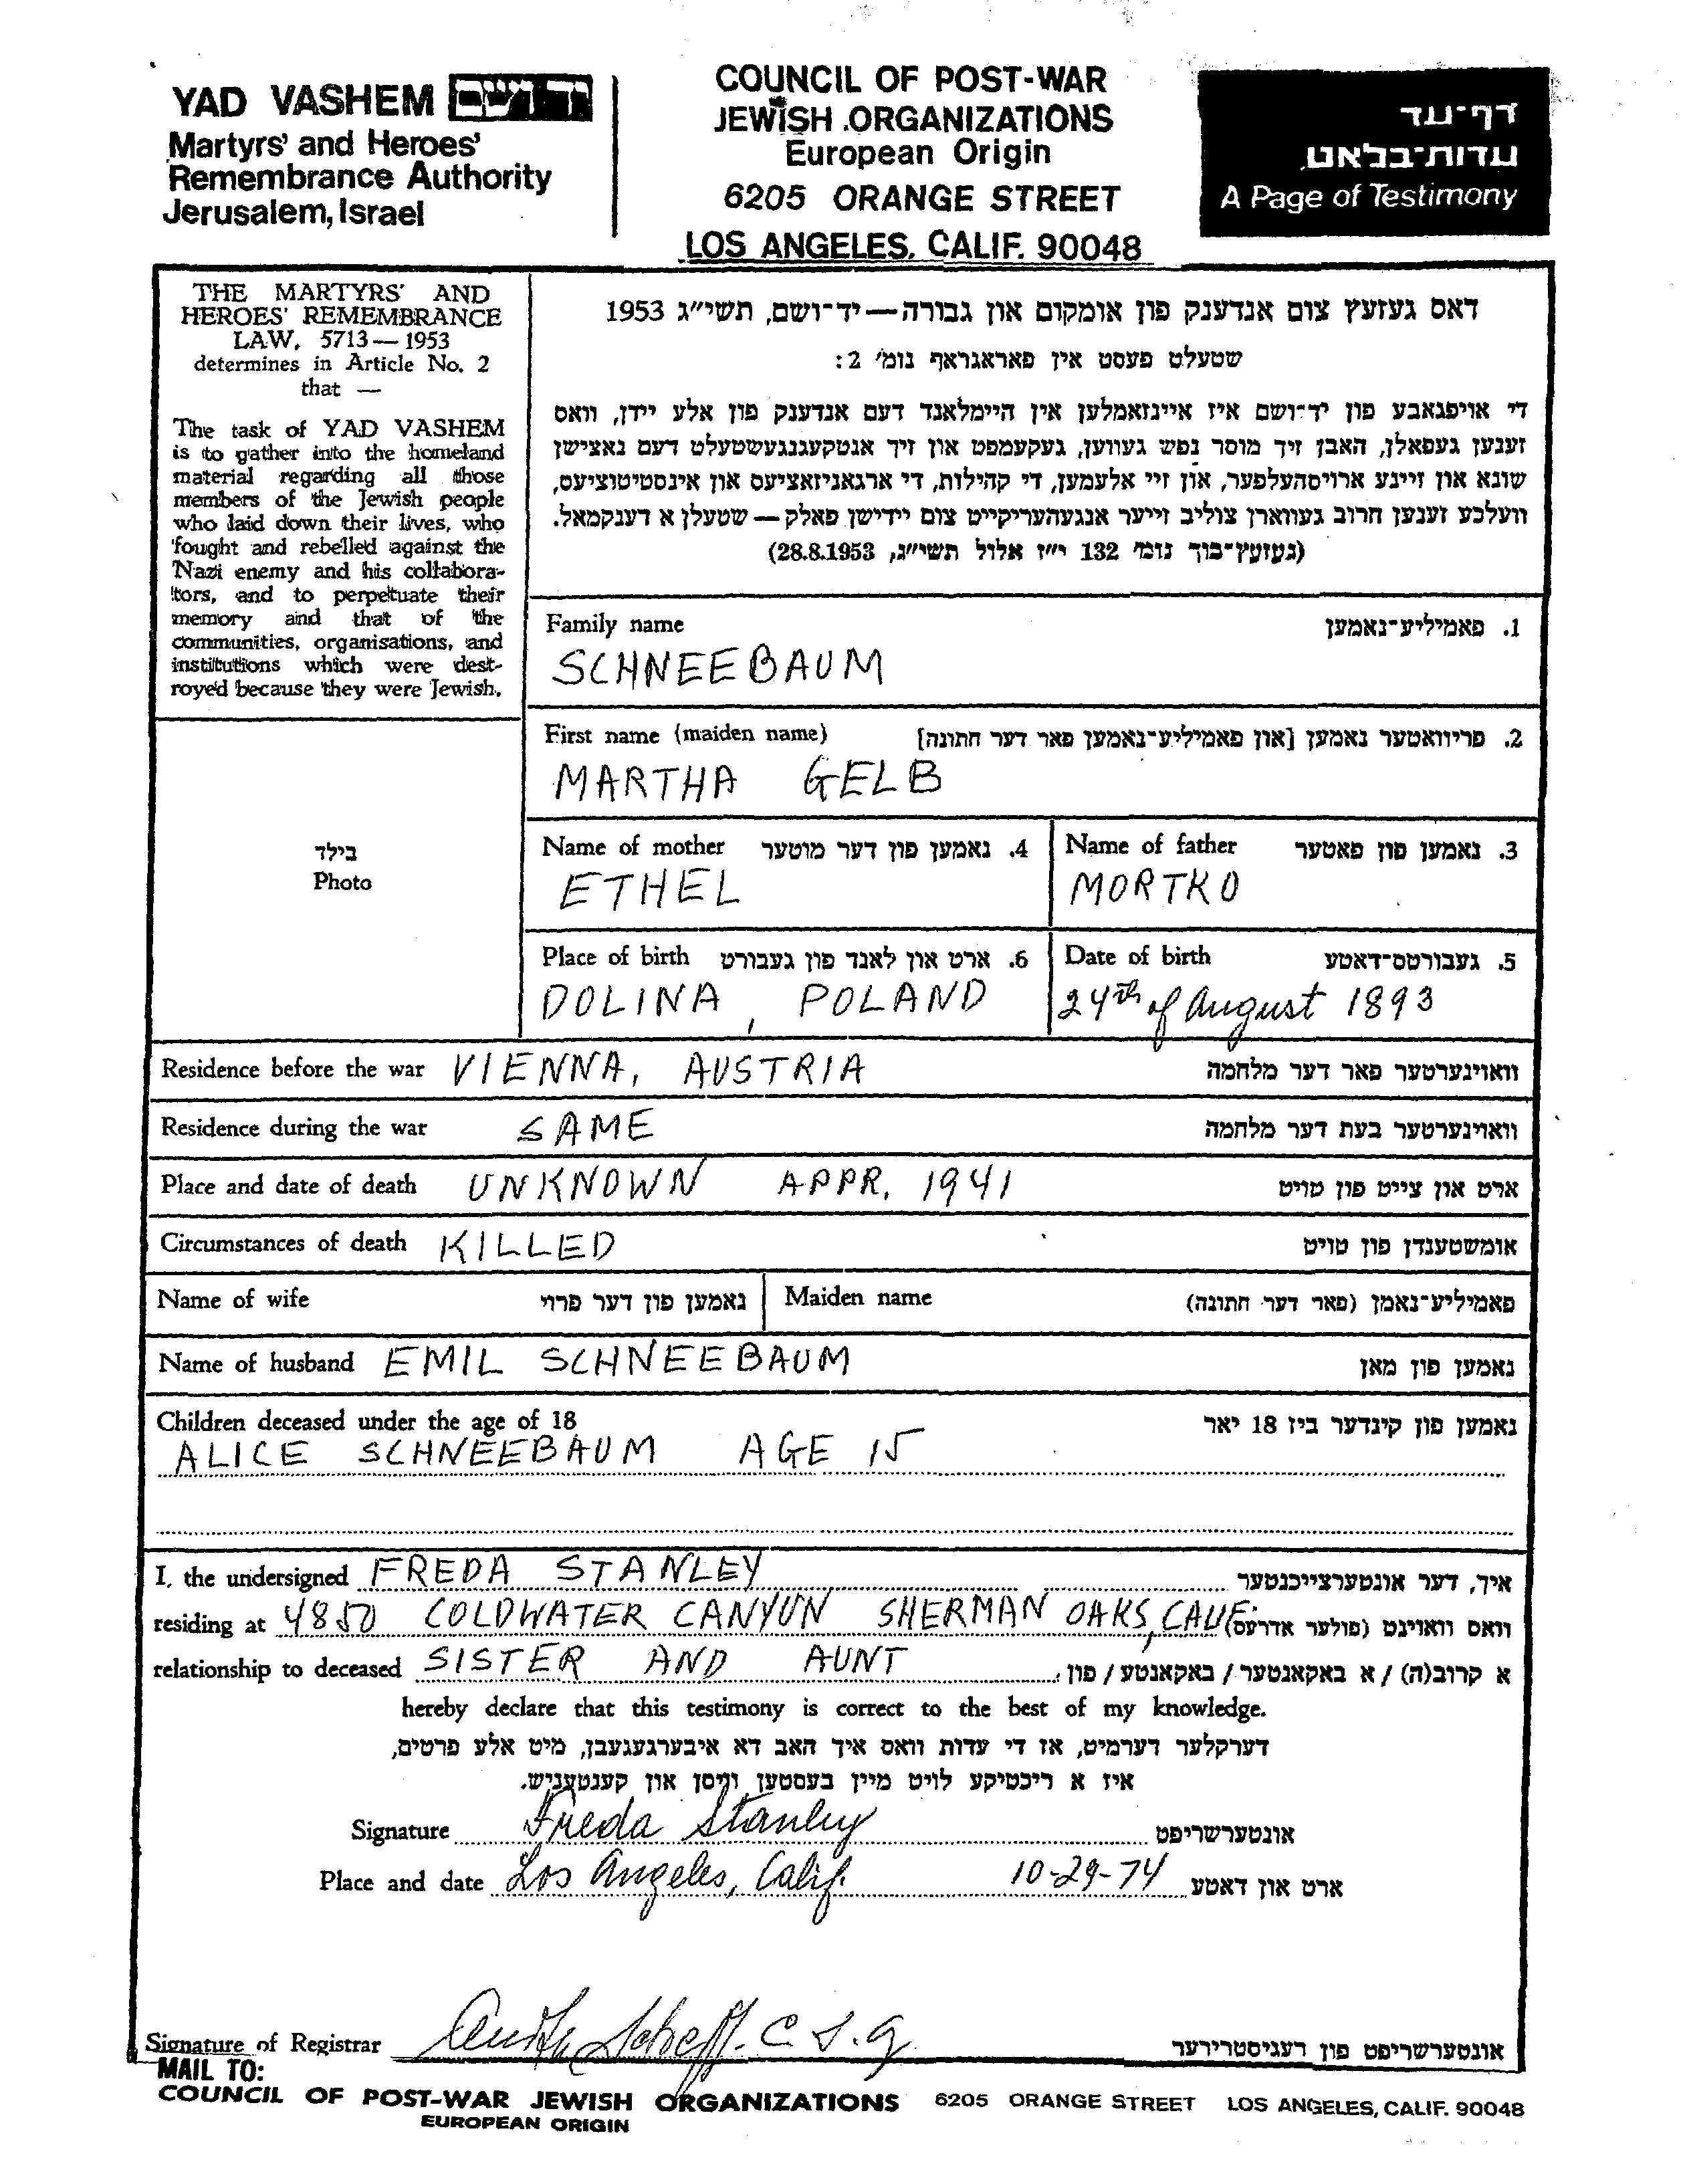 YAD VASHEM יד ושם
Martyrs' and Heroes'
Remembrance Authority
Jerusalem, Israel
COUNCIL OF POST-WAR
JEWISH ORGANIZATIONS
European Origin
6205 ORANGE STREET
LOS ANGELES, CALIF. 90048
דף־עד
עדות־בלאט
A Page of Testimony
THE MARTYRS' AND
HEROES' REMEMBRANCE
LAW, 5713—1953
determines in Article No. 2
that —
The task of YAD VASHEM
is to gather into the homeland
material regarding all those
members of the Jewish people
who laid down their lives, who
fought and rebelled against the
Nazi enemy and his collabora-
tors, and to perpetuate their
memory and that of the
communities, organisations, and
institutions which were dest-
royed because they were Jewish.
דאס געזעץ צום אנדענק פון אומקום און גבורה—יד־ושם, תשי״ג 1953
שטעלט פעסט אין פאראגראף נומ׳ 2:
די אויפגאבע פון יד־ושם איז איינזאמלען אין היימלאנד דעם אנדענק פון אלע יידן, וואס
זענען געפאלן, האבן זיך מוסר נפש געווען, געקעמפט און זיך אנטקעגנגעשטעלט דעם נאצישן
שונא און זיינע ארויסהעלפער, און זיי אלעמען, די קהילות, די ארגאניזאציעס און אינסטיטוציעס,
וועלכע זענען חרוב געווארן צוליב זייער אנגעהעריקייט צום יידישן פאלק—שטעלן א דענקמאל.
(געזעץ־בוך נומ׳ 132 י״ז אלול תשי״ג, 28.8.1953)
Family name 1. פאמיליע־נאמען
SCHNEEBAUM
First name (maiden name) 2. פריוואטער נאמען [און פאמיליע־נאמען פאר דער חתונה]
MARTHA GELB
בילד
Photo
Name of mother 4. נאמען פון דער מוטער
ETHEL
Name of father 3. נאמען פון פאטער
MORTKO
Place of birth 6. ארט און לאנד פון געבורט
DOLINA, POLAND
Date of birth 5. געבורטס־דאטע
24th of August 1893
Residence before the war VIENNA, AUSTRIA וואוינערטער פאר דער מלחמה
Residence during the war SAME וואוינערטער בעת דער מלחמה
Place and date of death UNKNOWN APPR. 1941 ארט און צייט פון טויט
Circumstances of death KILLED אומשטענדן פון טויט
Name of wife נאמען פון דער פרוי Maiden name פאמיליע־נאמן (פאר דער חתונה)
Name of husband EMIL SCHNEEBAUM נאמען פון מאן
Children deceased under the age of 18 נאמען פון קינדער ביז 18 יאר
ALICE SCHNEEBAUM AGE 15
I, the undersigned FREDA STANLEY איך, דער אונטערצייכנטער
residing at 4850 COLDWATER CANYUN SHERMAN OAKS, CALIF. וואס וואוינט (פולער אדרעס)
relationship to deceased SISTER AND AUNT א קרוב(ה) / א באקאנטער / באקאנטע / פון
hereby declare that this testimony is correct to the best of my knowledge.
דערקלער דערמיט, אז די עדות וואס איך האב דא איבערגעגעבן, מיט אלע פרטים,
איז א ריכטיקע לויט מיין בעסטען וויסן און קענטעניש.
Signature Freda Stanley אונטערשריפט
Place and date Los Angeles, Calif. 10-29-74 ארט און דאטע
Signature of Registrar אונטערשריפט פון רעגיסטרירער
MAIL TO:
COUNCIL OF POST-WAR JEWISH ORGANIZATIONS 6205 ORANGE STREET LOS ANGELES, CALIF. 90048
EUROPEAN ORIGIN